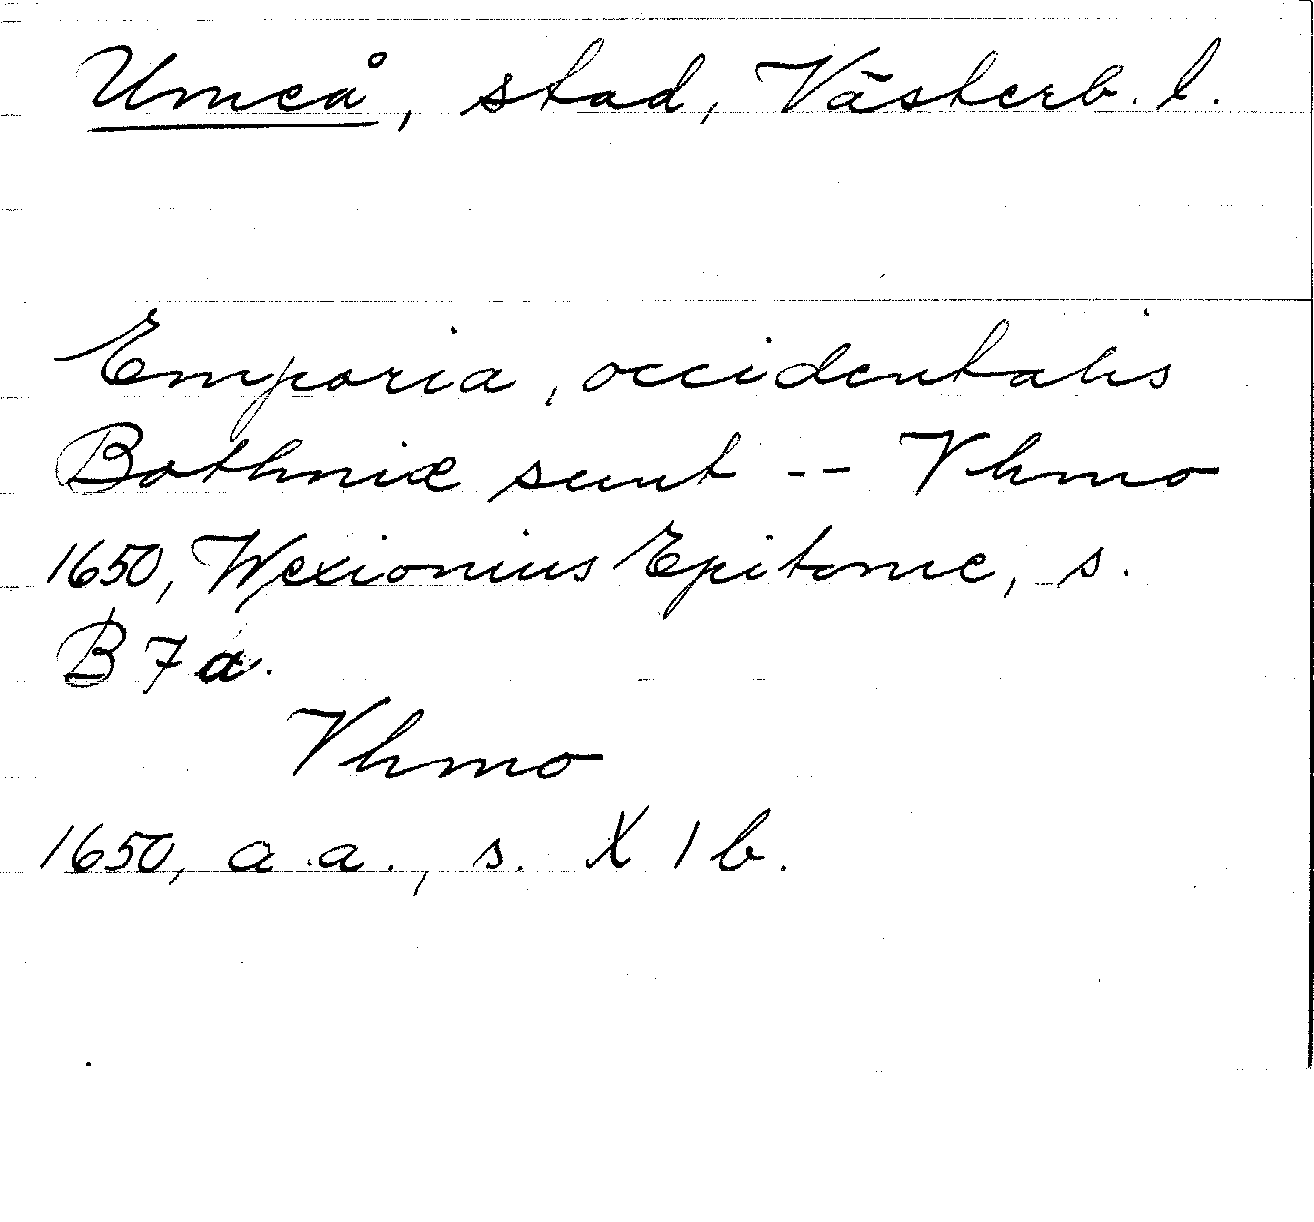 Umeå, stad, Västerb. l.
Emporia, occidentalis
Bothniæ sunt -- Vhmo
1650, Wexionius Epitome, s.
B 7 a.
Vhmo
1650, a.a., s. X 1 b.